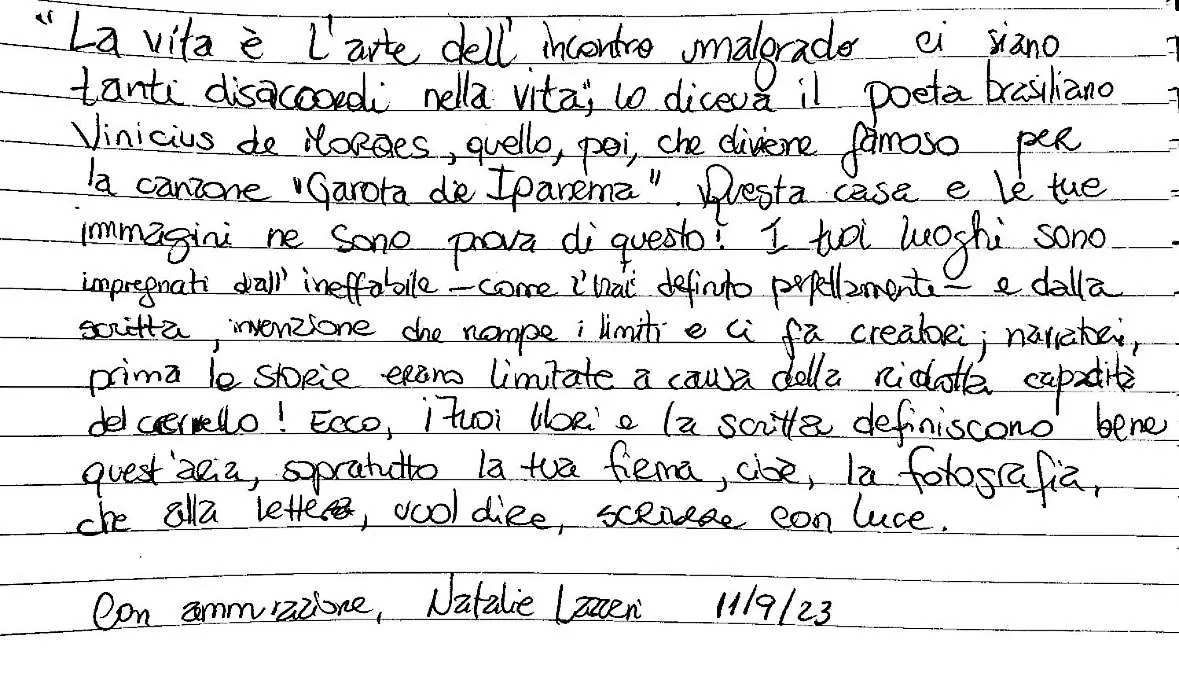 "La vita è l'arte dell'incontro malgrado ci siano
tanti disaccordi nella vita", lo diceva il poeta brasiliano
Vinicius de Moraes, quello, poi, che diviene famoso per
la canzone "Garota de Ipanema". Questa casa e le tue
immagini ne sono prova di questo! I tuoi luoghi sono
impregnati dall'ineffabile - come l'hai definito perfettamente - e dalla
scritta, invenzione che rompe i limiti e ci fa creatori; narratori,
prima le storie erano limitate a causa della ridotta capacità
del cervello! Ecco, i tuoi libri e la scritta definiscono bene
quest'aria, sopratutto la tua firma, cioè, la fotografia,
che alla lettera, vuol dire, scrivere con luce.
Con ammirazione, Natalie 11/9/23